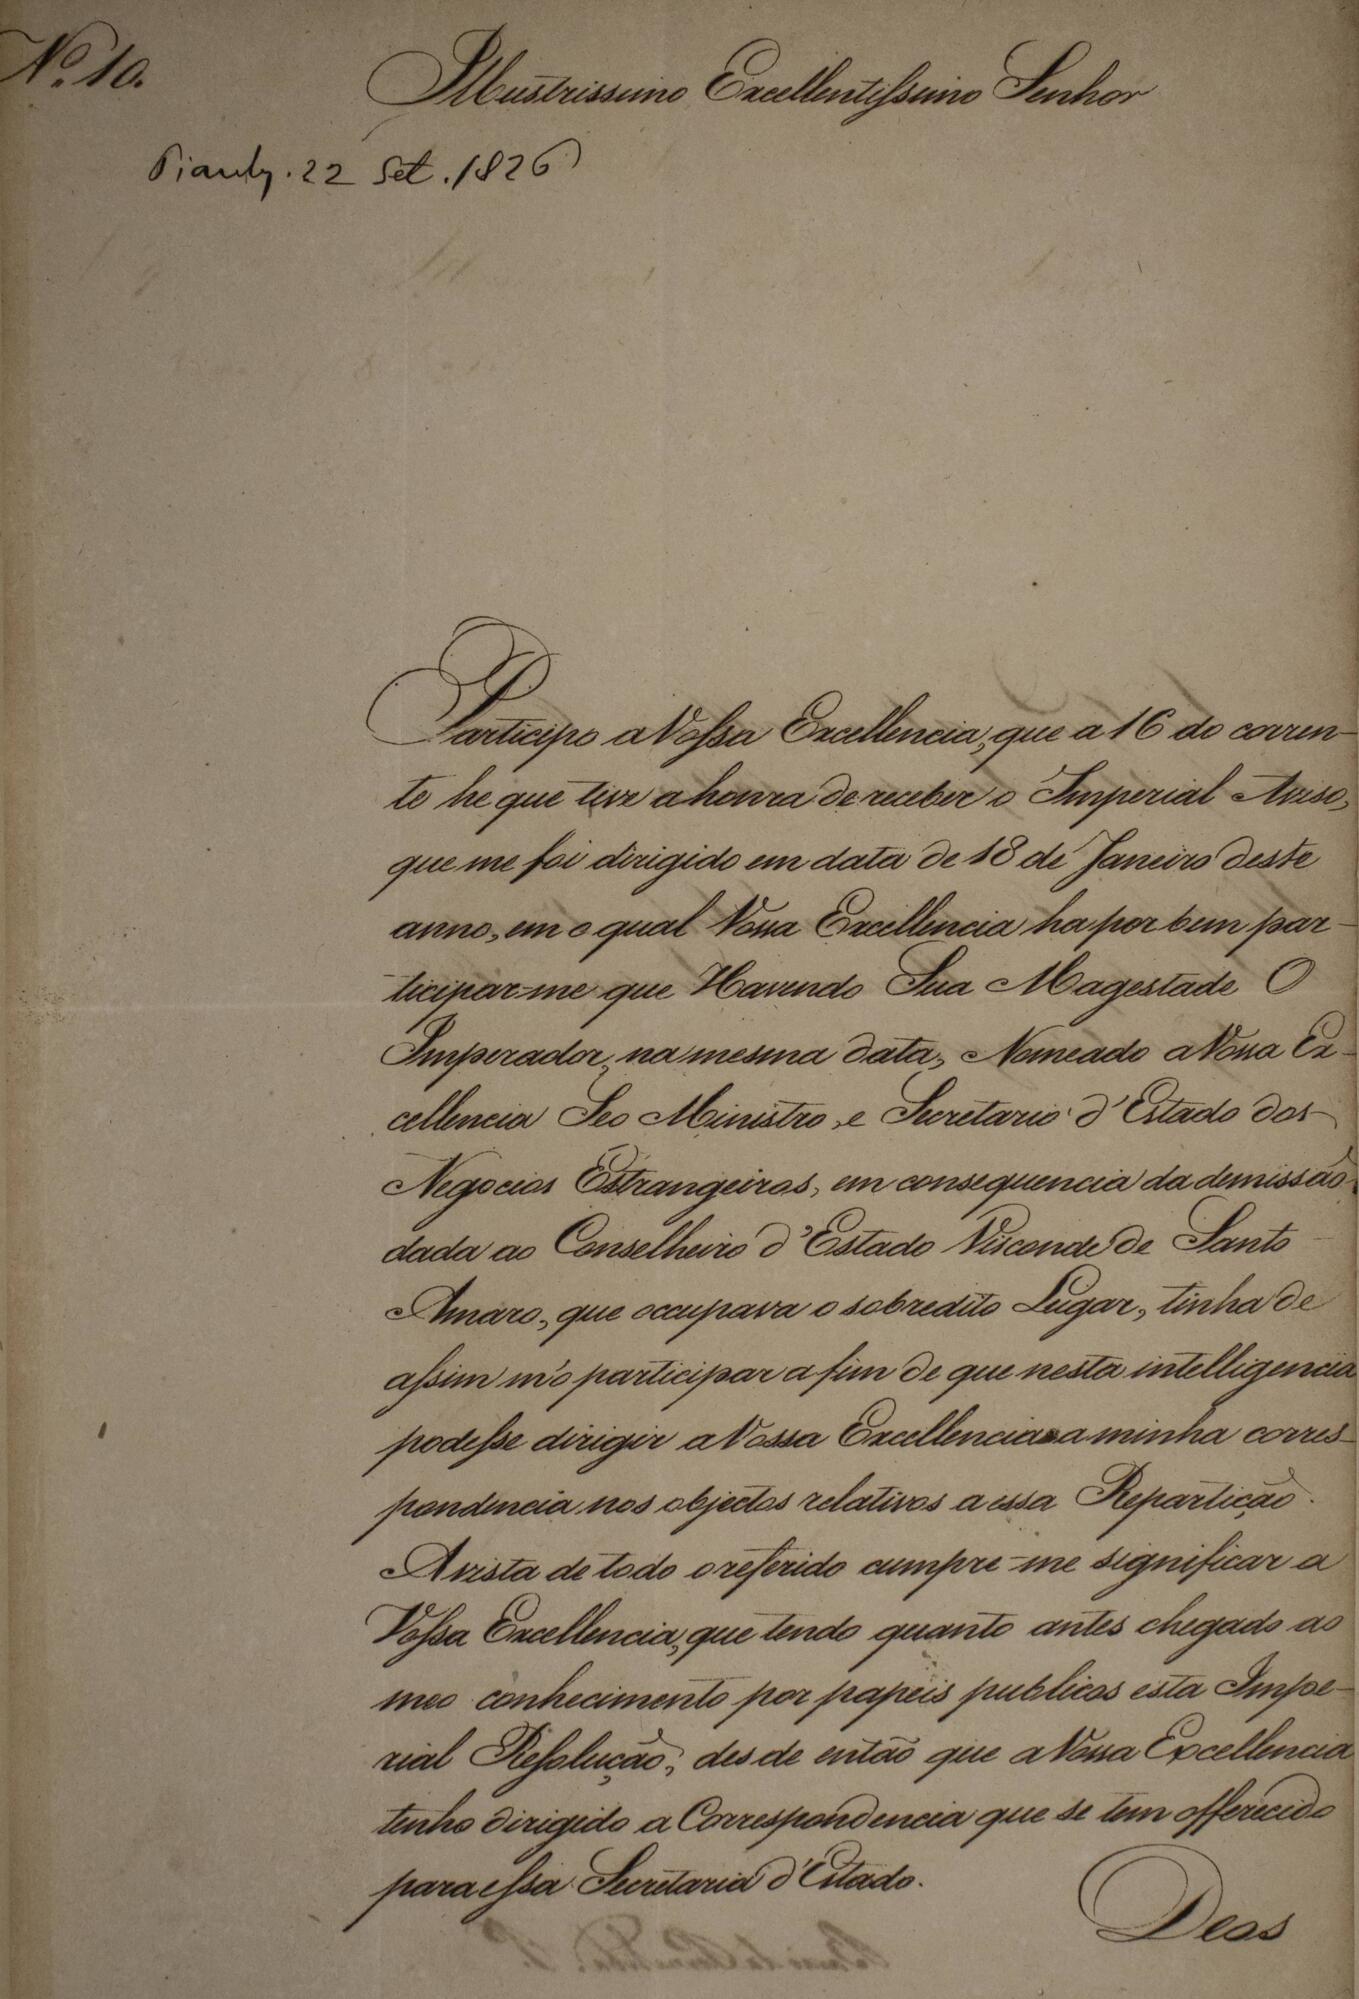 Nº. 10.
Illustrissimo Excellentissimo Senhor
Piauhy. 22 Set. 1826
Participo a Vossa Excellencia, que a 16 do corren-
te he que tive a honra de receber o Imperial Aviso,
que me foi dirigido em data de 18 de Janeiro deste
anno, em o qual Vossa Excellencia ha por bem par-
ticipar-me que Havendo Sua Magestade O
Imperador, na mesma data, Nomeado a Vossa Ex-
cellencia Seo Ministro, e Secretario d'Estado dos
Negocios Estrangeiros, em consequencia da demissão
dada ao Conselheiro d'Estado Visconde de Santo
Amaro, que occupava o sobredito Lugar, tinha de
assim m'o participar a fim de que nesta intelligencia
podesse dirigir a Vossa Excellencia a minha corres-
pondencia nos objectos relativos a essa Repartição.
Avista de todo o referido cumpre-me significar a
Vossa Excellencia, que tendo quanto antes chegado ao
meo conhecimento por papeis publicos esta Impe-
rial Resolução, desde então que a Vossa Excellencia
tenho dirigido a Correspondencia que se tem offerecido
para essa Secretaria d'Estado.
Deos